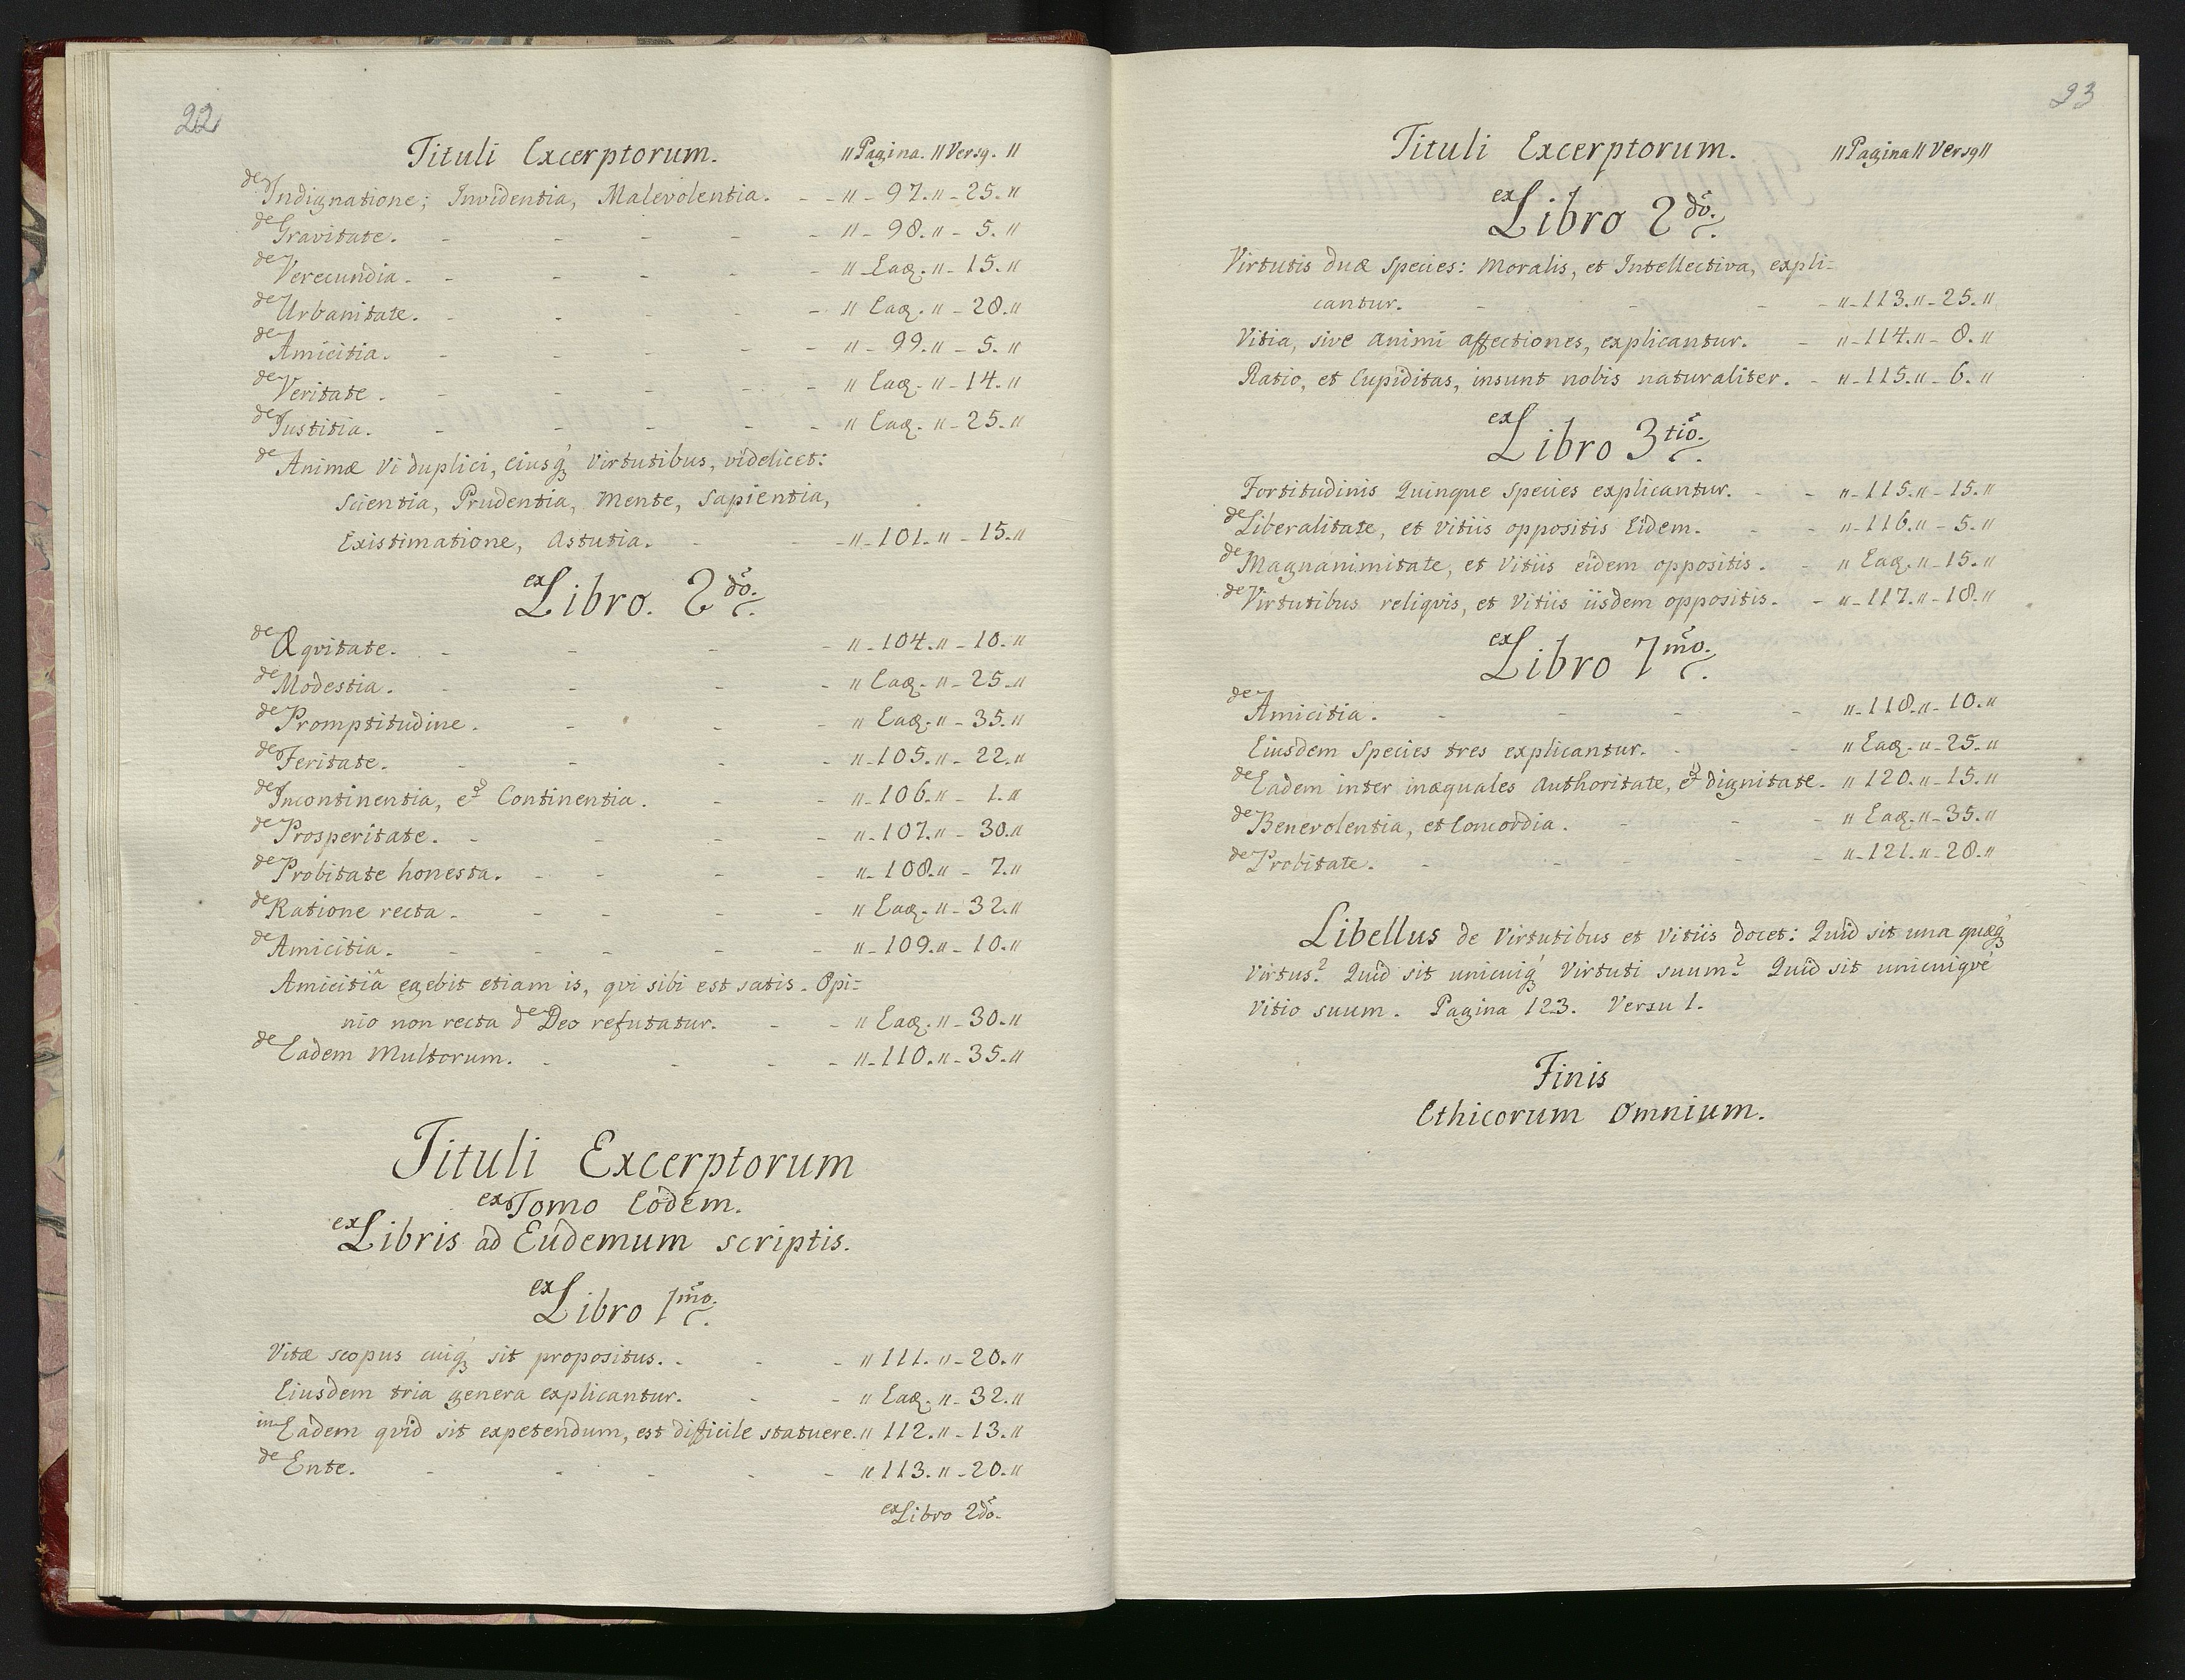 22
Tituli Excerptorum. " Pagina. " Versq. "
de Indignatione; Invidentia, Malevolentia. - - " - 97. " - 25. "
de Gravitate. - - - - - " - 98. " - 5. "
de Verecundia. - - - - - " Eaq. " - 15. "
de Urbanitate. - - - - - " Eaq. " - 28. "
de Amicitia. - - - - - " - 99. " - 5. "
de Veritate. - - - - - " Eaq. " - 14. "
de Justitia. - - - - - " Eaq. " - 25. "
de Animæ vi duplici, eiusq́ Virtutibus, videlicet:
Scientia, Prudentia, Mente, Sapientia,
Existimatione, Astutia. - - - " - 101. " - 15. "
ex Libro. 2do.
de Æqvitate. - - - - " - 104. " - 10. "
de Modestia. - - - - " Eaq. " - 25. "
de Promptitudine. - - - " Eaq. " - 35. "
de Feritate. - - - - " - 105. " - 22. "
de Incontinentia, et Continentia. - - " - 106. " - 1. "
de Prosperitate. - - - - " - 107. " - 30. "
de Probitate honesta. - - - - " - 108. " - 7. "
de Ratione recta. - - - - " Eaq. " - 32. "
de Amicitia. - - - - - " - 109. " - 10. "
Amicitiâ egebit etiam is, qvi sibi est satis. Opi=
nio non recta de Deo refutatur. - - " Eaq. " - 30. "
de Eadem Multorum. - - - - " - 110. " - 35. "
Tituli Excerptorum
ex Tomo Eodem.
ex Libris ad Eudemum scriptis.
ex Libro 1mo.
Vitæ scopus cuiq́ sit propositus. - - - " 111. " - 20. "
Eiusdem tria genera explicantur. - - " Eaq. " - 32. "
in Eadem qvid sit expetendum, est difficile statuere. " 112. " - 13. "
de Ente. - - - - - " 113. " - 20. "
ex Libro 2do.
23
Tituli Excerptorum. " Pagina " Versq "
ex Libro 2do.
Virtutis duæ Species: Moralis, et Intellectiva, expli=
cantur. - - - - " - 113. " - 25. "
Vitia, sive animi affectiones, explicantur. - " - 114. " - 8. "
Ratio, et Cupiditas, insunt nobis naturaliter. - " - 115. " - 6. "
ex Libro 3tio.
Fortitudinis Quinque Species explicantur. - - " - 115. " - 15. "
de Liberalitate, et Vitiis oppositis Eidem. - - " - 116. " - 5. "
de Magnanimitate, et Vitiis eidem oppositis. - " Eaq. " - 15. "
de Virtutibus reliqvis, et Vitiis iisdem oppositis. - " - 117. " - 18. "
ex Libro 7mo.
de Amicitia. - - - - " - 118. " - 10. "
Eiusdem Species tres explicantur. - - " Eaq. " - 25. "
de Eadem inter inæquales Authoritate, et dignitate. " 120. " - 15. "
de Benevolentia, et Concordia. - - - " Eaq. " - 35. "
de Probitate. - - - - - " - 121. " - 28. "
Libellus de Virtutibus et Vitiis docet: Quid sit una quæq́
Virtus? Quid sit unicuiq́ Virtuti suum? Quid sit unicuiqvé
Vitio suum. Pagina 123. Versu 1.
Finis
Ethicorum Omnium.